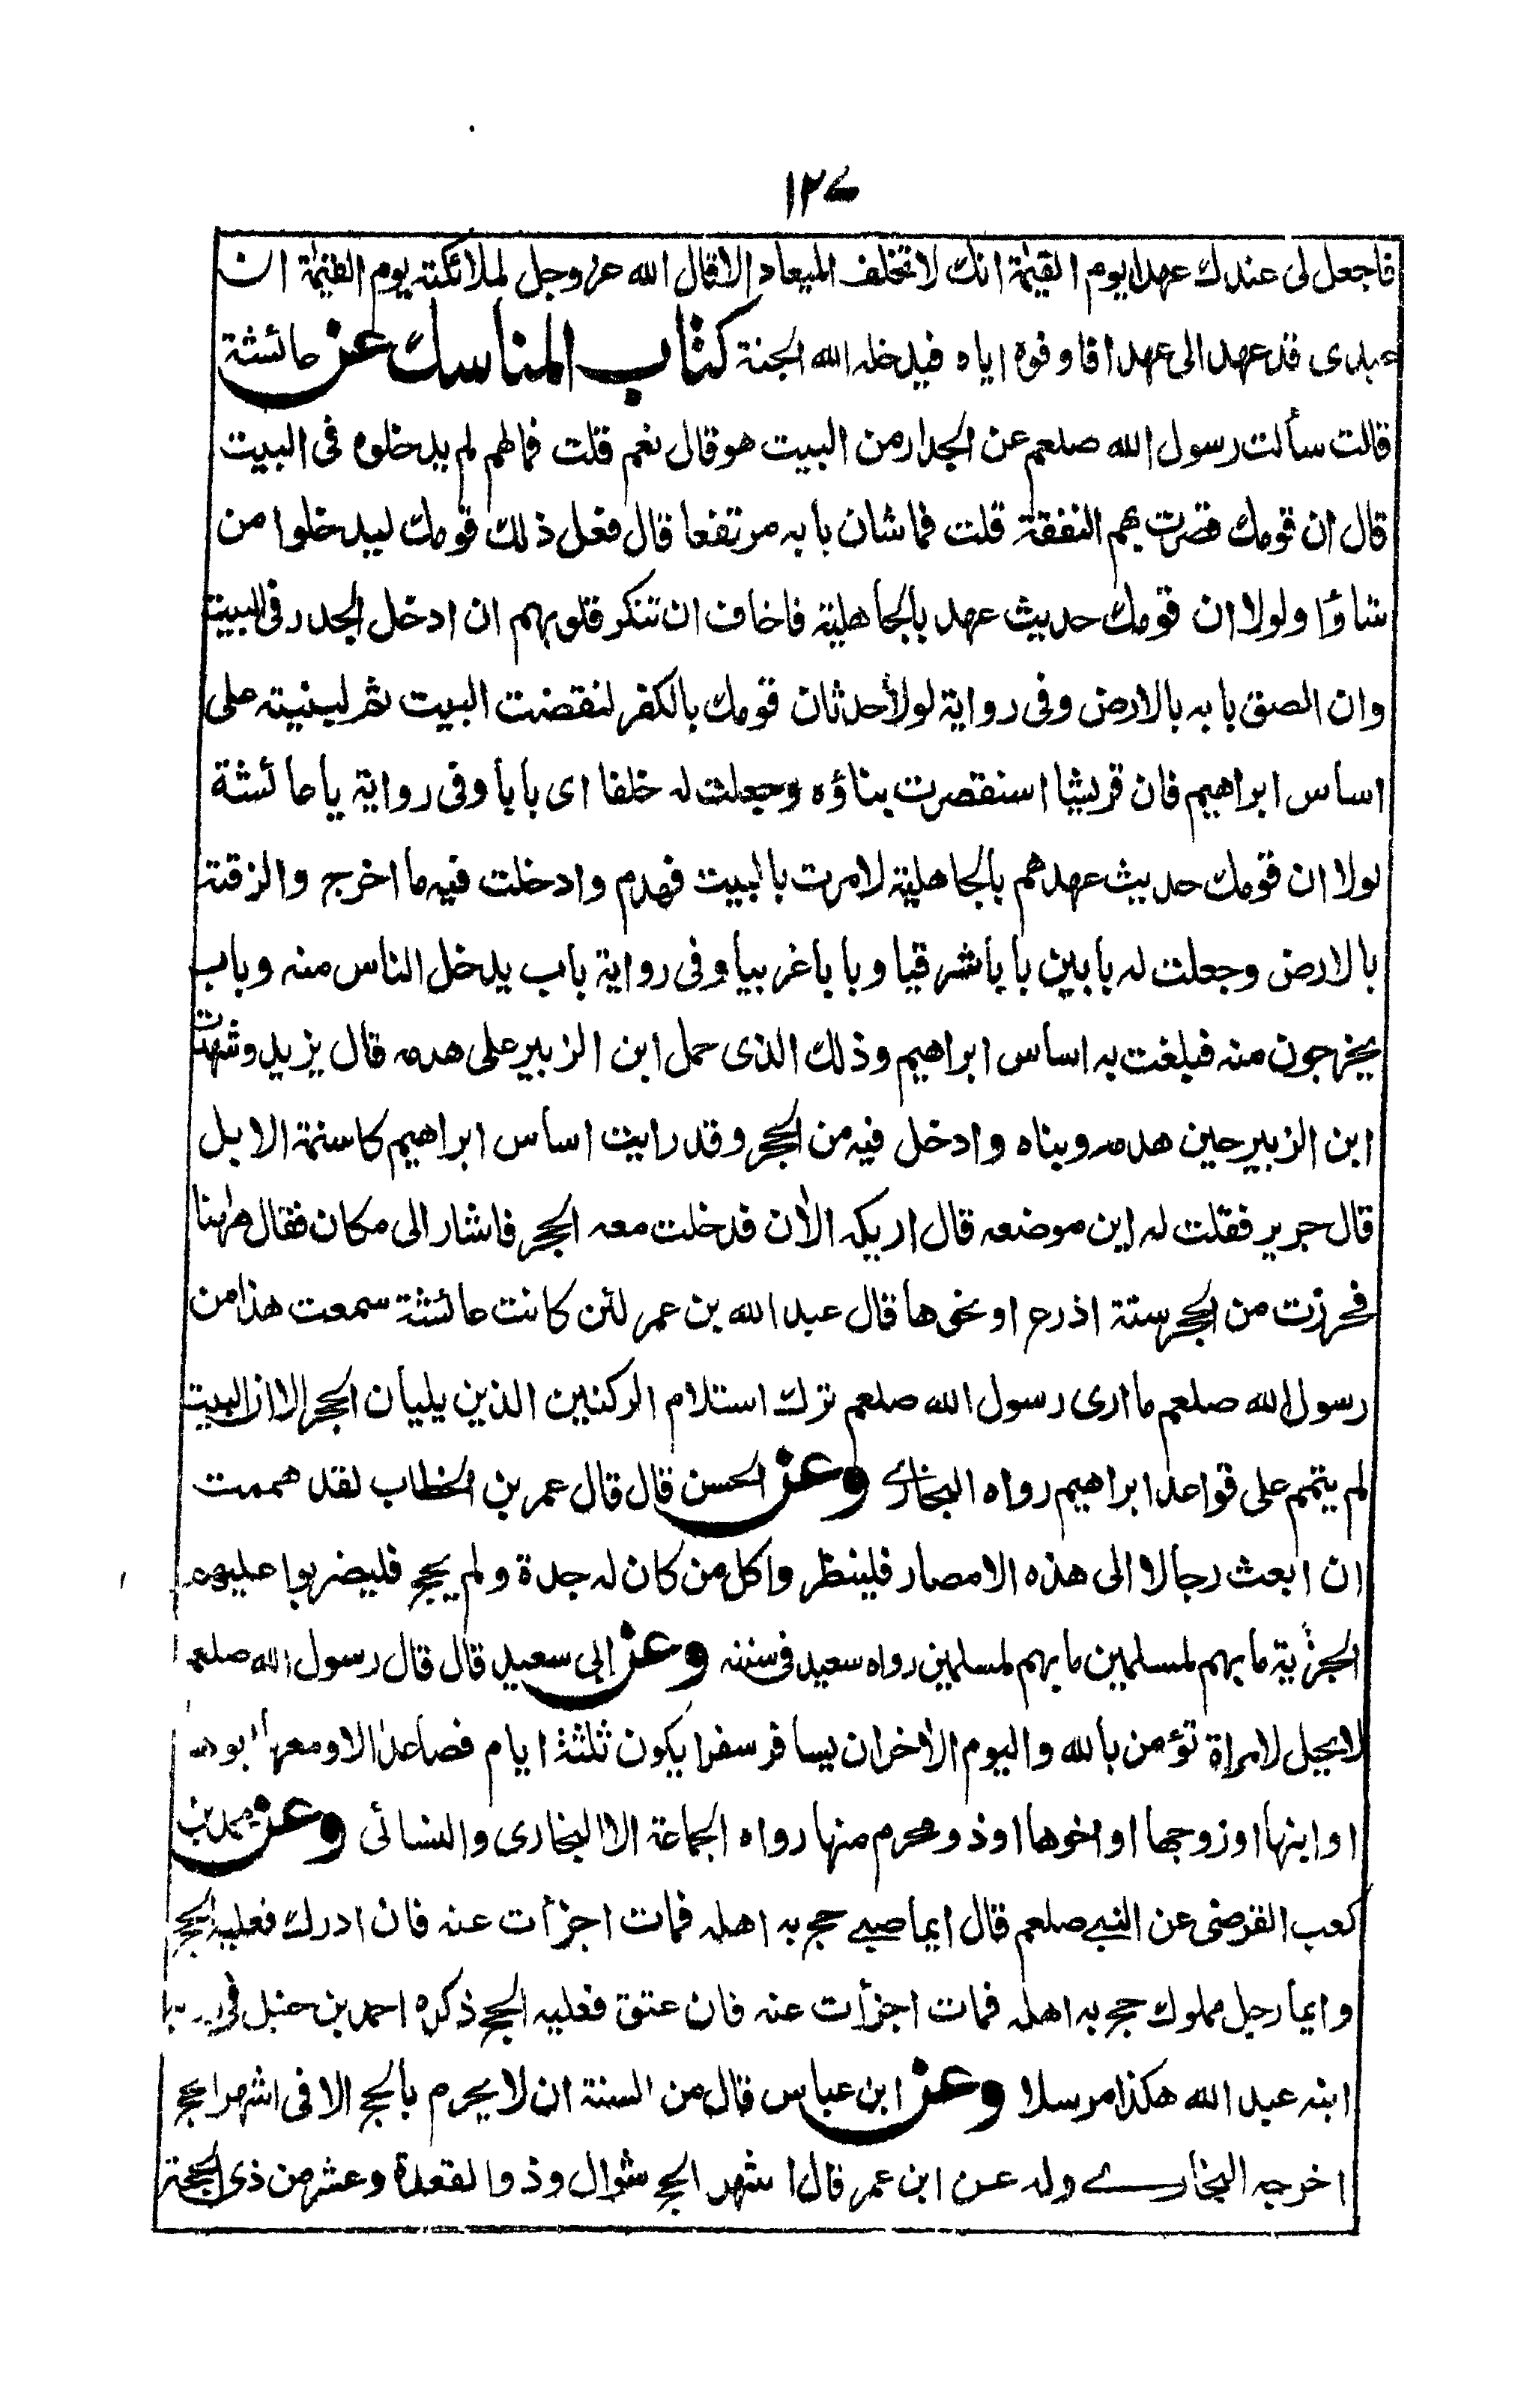 ١٢٧
فاجعل لى عندك عهدا يوم القيمة انك لا تخلف الميعاد الا قال الله عز وجل لملائكته يوم القيمة ان
عبدى قد عهد الى عهدا فاوفوه اياه فيدخله الله الجنة كتاب المناسك عن عائشة
قالت سألت رسول الله صلعم عن الجدار من البيت هو قال نعم قلت فما لهم لم يدخلوه فى البيت
قال ان قومك قصرت بهم النفقة قلت فما شان بابه مرتفعا قال فعل ذلك قومك ليدخلوا من
شاؤا ولولا ان قومك حديث عهد بالجاهلية فاخاف ان تنكر قلوبهم ان ادخل الجدر فى البيت
وان الصق بابه بالارض وفى رواية لولا حدثان قومك بالكفر لنقضت البيت ثم لبنيته على
اساس ابراهيم فان قريشا استقصرت بناؤه وجعلت له خلفا اى بابا وفى رواية يا عائشة
لولا ان قومك حديث عهدهم بالجاهلية لامرت بالبيت فهدم وادخلت فيه ما اخرج والزقته
بالارض وجعلت له بابين بابا شرقيا وبابا غربيا وفى رواية باب يدخل الناس منه وباب
يخرجون منه فبلغت به اساس ابراهيم وذلك الذى حمل ابن الزبير على هدمه قال يزيد وشهدت
ابن الزبير حين هدمه وبناه وادخل فيه من الحجر وقد رايت اساس ابراهيم كاسنمة الابل
قال جرير فقلت له اين موضعه قال اريكه الأن فدخلت معه الحجر فاشار الى مكان فقال ههنا
فحرزت من الحجر ستة اذرع او نحوها قال عبد الله بن عمر لئن كانت عائشة سمعت هذا من
رسول الله صلعم ما ارى رسول الله صلعم ترك استلام الركنين الذين يليان الحجر الا ان البيت
لم يتمم على قواعد ابراهيم رواه البخارى وعن الحسن قال قال عمر بن الخطاب لقد هممت
ان ابعث رجالا الى هذه الامصار فلينظر واكل من كان له جدة ولم يحج فليضربوا عليهم
الجزية ما بهم لمسلمين ما بهم لمسلمين رواه سعيد فى سننه وعن ابى سعيد قال قال رسول الله صلعم
لا يحل لامراة تؤمن بالله واليوم الأخر ان يسافر سفرا يكون ثلثة ايام فصاعدا الا ومعها ابوها
او ابنها او زوجها او اخوها او ذو محرم منها رواه الجماعة الا البخارى والنسائى وعن محمد بن
كعب القرضى عن النبى صلعم قال ايما صبى حج به اهله فمات اجزأت عنه فان ادرك فعليه الحج
وايما رجل مملوك حج به اهله فمات اجزأت عنه فان عتق فعليه الحج ذكره احمد بن حنبل فى
ابنه عبد الله هكذا مرسلا وعن ابن عباس قال من السنة ان لا يحرم بالحج الا فى اشهر الحج
اخرجه البخارى وله عن ابن عمر قال اشهر الحج شوال وذوالقعدة وعشر من ذى الحجة